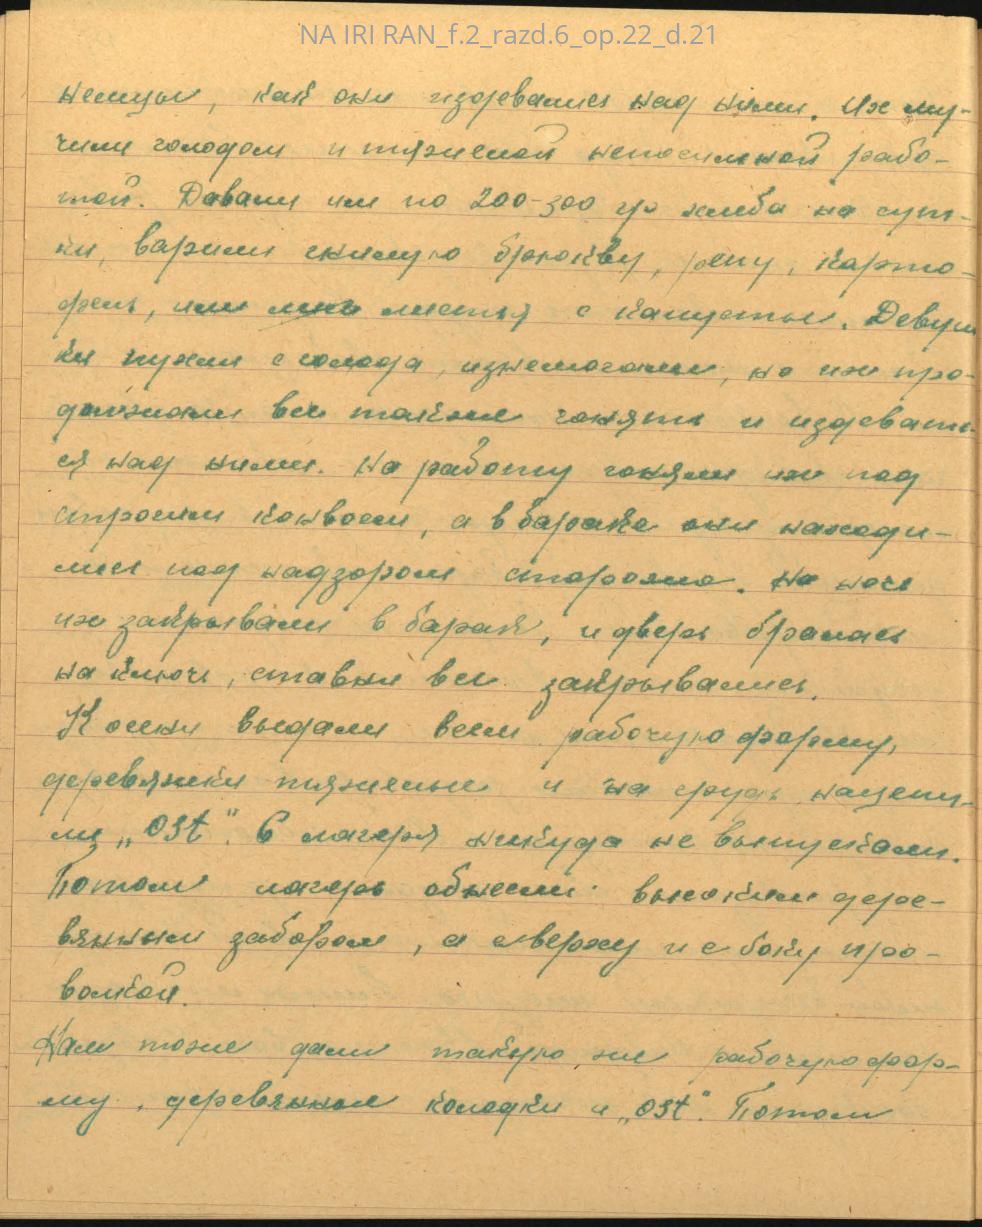 NA IRI RAN_f.2_razd.6_op.22_d.21
немцы, как они издевались над ними. Их му-
чили голодом и тяжелой непосильной рабо-
той. Давали им по 200-300 гр хлеба на сут-
ки, варили гнилую брюкву, репу, карто-
фель, или листья с капусты. Девуш
ки пухли с голода, изнемогали, но их про-
должали все также гонять и издевать-
ся над ними. На работу гоняли их под
строгим конвоем, а в бараке они находи-
лись под надзором сторожа. На ночь
их закрывали в барак, и дверь бралась
на ключ, ставни все закрывались.
К осени выдали всем рабочую форму,
деревяжки тяжелые и на грудь нацепи-
ли „Ost". С лагеря никуда не выпускали.
Потом лагерь обнесли высоким дере-
вянным забором, а сверху и с боку про-
волкой.
Нам тоже дали такую же рабочую фор-
му, деревянные колодки и „Ost". Потом